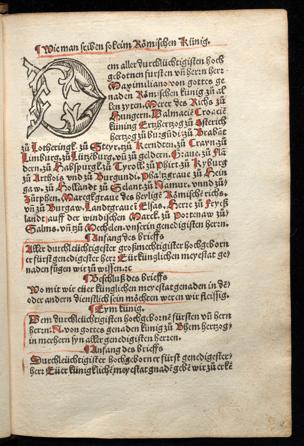 ¶ Wie man seiben sol eim Römischen Künig.
Dem aller durchlüchtigisten hoch
gebornen fürsten vñ herrn herr
Maximiliano von gottes ge
naden Römischen künig zů al
len zyten. Merer des Richs zů
Hungern. Dalmacie Croacie
küning Ertzhertzog zů Osterich
hertzog zů burgūdi. zů Brabāt
zů Lotheringk zů Styer. zů Kerndten. zů Crayn. zů
Limburg. vñ Lützburg. vñ zů geldern. Graue. zů Flā
dern. zů Habspurgk zů Tyroll. zů phirt zů Kyburg
zů Arthois vnd zů Burgundi. phaltzgraue zů Hein
gaw. zů Hollandt zů Selant zů Namur. vnnd zů
Zütphen. Marckgraue des heylige Römische richs.
vñ zů Burgaw. Landtgraue ī Elsas. Herr zů Fryeß
landt auff der windischen Marck. zů Portenaw zů
Salms. vñ zů Mechelen. vnserm genedigisten herrn.
¶ Anfang des brieffs
Aller durchlüchtigister großmechtigister hochgeborn
er fürst genedigister herr. Eür künglichen mayestat ge
naden fügen wir zů wissen. ꝛc
¶ Beschluß des brieffs
Wo mit wir eüer künglichen mayestat genaden in dē
oder andern dienstlich sein möchten weren wir fleissig.
¶ Eym künig.
Dem durchlüchtigisten hochgebornē fürsten vñ herrn
herrn. N. von gottes genaden künig zů Bhem hertzog
in merhern ꝛc vnserm aller genedigisten herren.
¶ Anfang des brieffs
Durchleüchtigister hochgeborner fürst genedigister
herr Eüer künigkliche mayestat gnadē gebē wir zů erkē